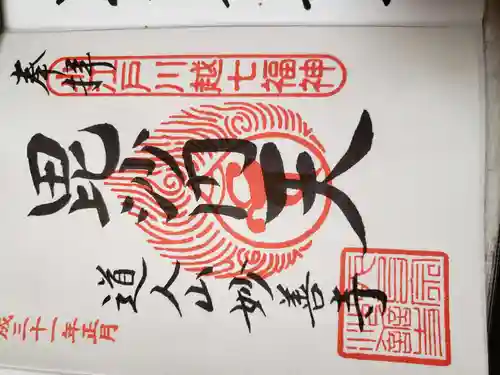 奉拝
小江戸川越七福神
毘沙門天
道人山妙善寺
成三十一年正月